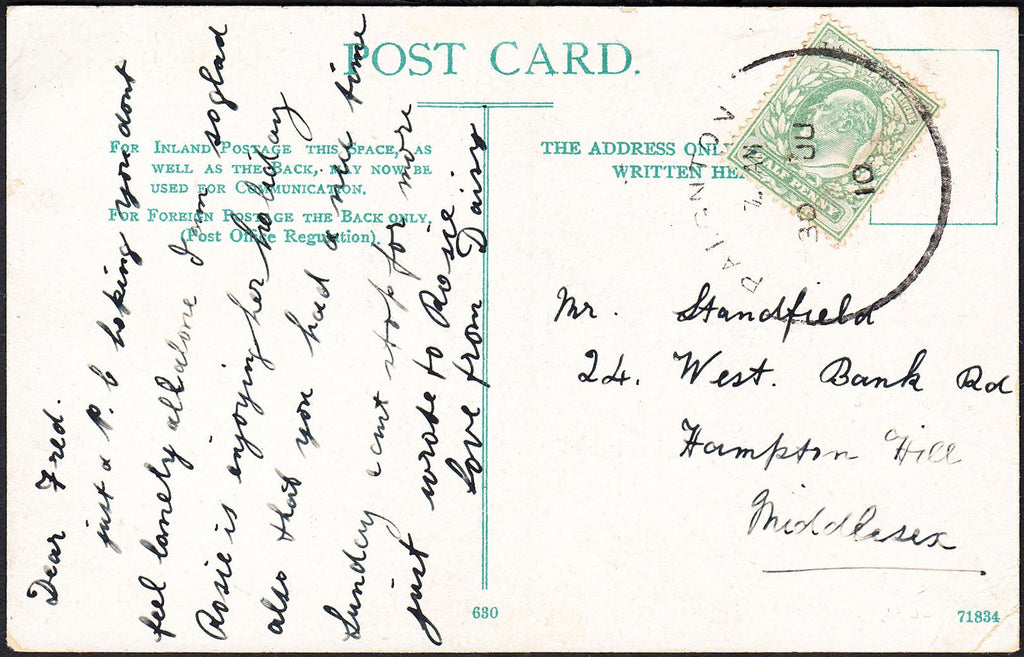 POST CARD.
FOR INLAND POSTAGE THIS SPACE, AS
WELL AS THE BACK, MAY NOW BE
USED FOR COMMUNICATION.
FOR FOREIGN POSTAGE THE BACK ONLY.
(Post Office Regulation).
THE ADDRESS ONLY
WRITTEN HE
Dear Fred.
just a p. c hoping you dont
feel lonely all alone I am so glad
Rosie is enjoying her holiday
also that you had a nice time
Sunday cant stop for more
just wrote to Rosie
Love from Daisy
HALF PENNY
PAIGNTON
30 JU
10
Mr. Standfield
24. West. Bank Rd
Hampton Hill
Middlesex
630
71834